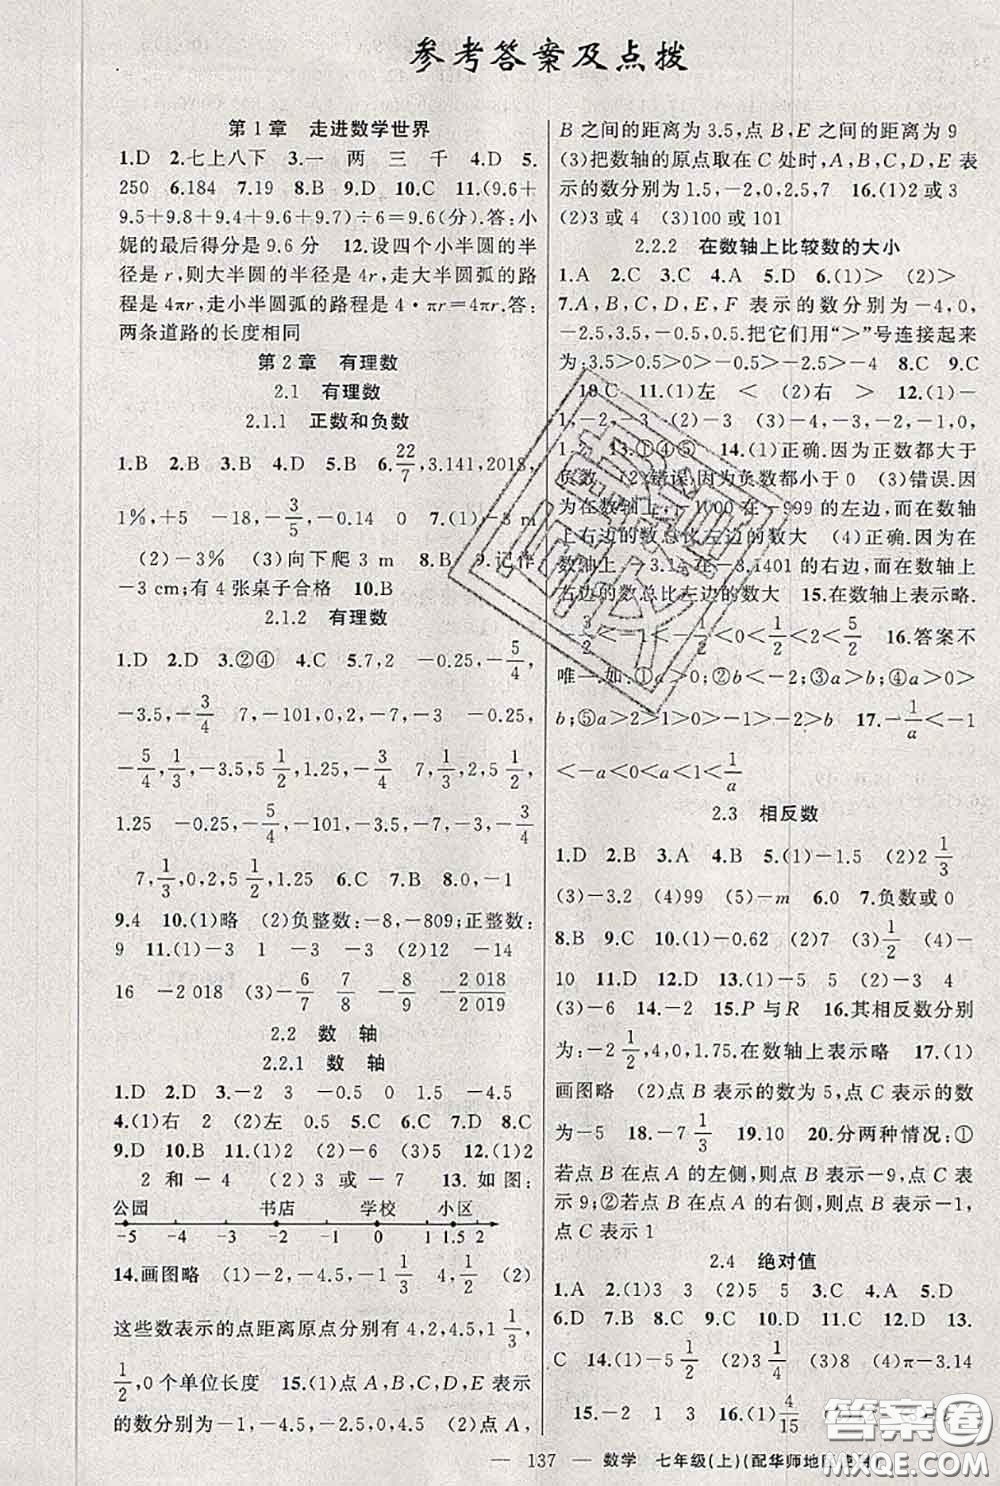 参考答案及点拨
第1章 走进数学世界
1.D 2.七上八下 3.一 两 三 千 4.D 5.
250 6.184 7.19 8.B 9.D 10.C 11.(9.6+
9.5+9.8+9.4+9.6+9.7)÷6=9.6(分).答:小
妮的最后得分是9.6分 12.设四个小半圆的半
径是r,则大半圆的半径是4r,走大半圆弧的路
程是4πr,走小半圆弧的路程是4·πr=4πr.答:
两条道路的长度相同
第2章 有理数
2.1 有理数
2.1.1 正数和负数
1.B 2.B 3.B 4.D 5.B 6.22/7,3.141,2018,
1%,+5 -18,-3/5,-0.14 0 7.(1)-3 m
(2)-3% (3)向下爬3 m 8.B 9.记作
-3 cm;有4张桌子合格 10.B
2.1.2 有理数
1.D 2.D 3.②④ 4.C 5.7,2 -0.25,-5/4,
-3.5,-3/4 7,-101,0,2,-7,-3 -0.25,
-5/4,1/3,-3.5,5 1/2,1.25,-3/4 7,1/3,2,5 1/2,
1.25 -0.25,-5/4,-101,-3.5,-7,-3,-3/4
7,1/3,0,2,5 1/2,1.25 6.C 7.B 8.0,-1
9.4 10.(1)略 (2)负整数:-8,-809;正整数:
9 11.(1)-3 1 -3 -3 (2)12 -14
16 -2 018 (3)-6/7 7/8 -8/9 -2 018/2 019
2.2 数 轴
2.2.1 数 轴
1.D 2.D 3.-2 3 -0.5 0 1.5 -4.5
4.(1)右 2 (2)左 0.5 5.C 6.C 7.D 8.C
9.D 10.B 11.(1)2 (2)6 (3)5 12.(1)2
2和-4 (2)3或-7 13.如图:
公园 书店 学校 小区
-5 -4 -3 -2 -1 0 1 1.5 2
14.画图略 (1)-2,-4.5,-1 1/3 4,1/2 (2)
这些数表示的点距离原点分别有4,2,4.5,1 1/3,
1/2,0个单位长度 15.(1)点A,B,C,D,E表示
的数分别为-1,-4.5,-2.5,0,4.5 (2)点A,
B之间的距离为3.5,点B,E之间的距离为9
(3)把数轴的原点取在C处时,A,B,C,D,E表
示的数分别为1.5,-2,0,2.5,7 16.(1)2或3
(2)3或4 (3)100或101
2.2.2 在数轴上比较数的大小
1.A 2.C 3.C 4.A 5.D 6.(1)> (2)>
7.A,B,C,D,E,F表示的数分别为-4,0,
-2.5,3.5,-0.5,0.5.把它们用“>”号连接起来
为:3.5>0.5>0>-0.5>-2.5>-4 8.C 9.C
10.C 11.(1)左 < (2)右 > 12.(1)-
1,-2,-3 (2)0 (3)-4,-3,-2,-1,0,
13.①④⑤ 14.(1)正确.因为正数都大于
负数 (2)错误.因为负数都小于0 (3)错误.因
为在数轴上,-1000在-999的左边,而在数轴
上右边的数总比左边的数大 (4)正确.因为在
数轴上-3.14在-3.1401的右边,而在数轴上
右边的数总比左边的数大 15.在数轴上表示略.
-3/2<-1<-1/2<0<1/2<2<5/2 16.答案不
唯一.如:①a>0;②b<-2;③a>b;④a>0>
b;⑤a>2>1>0>-1>-2>b 17.-1/a<-1
<-a<0<a<1<1/a
2.3 相反数
1.D 2.B 3.A 4.B 5.(1)-1.5 (2)2 1/3
(3)-3.2 (4)99 (5)-m 6.0 7.负数或0
8.B 9.C 10.(1)-0.62 (2)7 (3)1/2 (4)-
10 11.D 12.D 13.(1)-5 5 (2)-3 4
(3)-6 14.-2 15.P与R 16.其相反数分别
为:-2 1/2,4,0,1.75.在数轴上表示略 17.(1)
画图略 (2)点B表示的数为5,点C表示的数
为-5 18.-7 1/3 19.10 20.分两种情况:①
若点B在点A的左侧,则点B表示-9,点C表
示9;②若点B在点A的右侧,则点B表示-1,
点C表示1
2.4 绝对值
1.A 2.(1)3 3 (2)5 5 3.C 4.A 5.D
6.D 7.B 8.(1)> (2)> 9.C 10.D 12.D 13.
C 14.(1)-5 1/2 (2)3 1/4 (3)8 (4)π-3.14
15.-2 1 3 16.(1)4/15
— 137 — 数学 七年级(上)(配华师地
答案圈